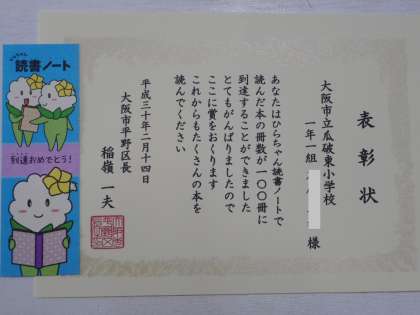 表彰状
大阪市立瓜破東小学校
一年一組
様
あなたはひらちゃん読書ノートで
読んだ本の冊数が一〇〇冊に
到達することができました
とてもがんばりましたので
ここに賞をおくります
これからもたくさんの本を
読んでください
平成三十年二月十四日
大阪市平野区長
稲嶺一夫
読書ノート
到達おめでとう!